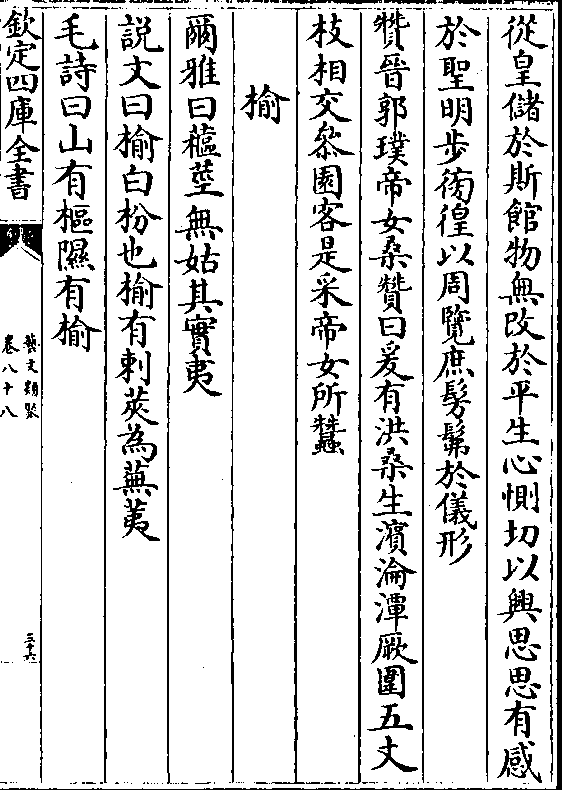 從皇儲於斯館物無改於平生心惻切以興思思有感
於聖明步彷徨以周覽庶髣髴於儀形
贊晉郭璞帝女桑贊曰爰有洪桑生濱淪潭厥圍五丈
枝相交叅園客是采帝女所蠶
榆
爾雅曰藲莖無姑其實夷
説文曰榆白枌也榆有刺莢為蕪荑
毛詩曰山有樞隰有榆
欽定四庫全書
藝文類聚
卷八十八
三十六